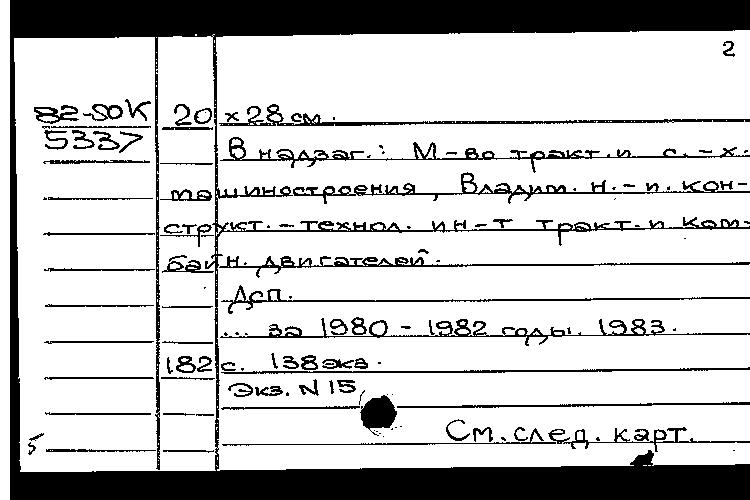 2
82-SOK 20 x 28 см.
5337
В надзаг.: М-во тракт. и с.-х.
машиностроения, Владим. н.-и. кон-
структ.-технол. ин-т тракт. и ком-
байн. двигателей.
Дсп.
... за 1980 - 1982 годы. 1983.
182 с. 138 экз.
Экз. N 15
См. след. карт.
5